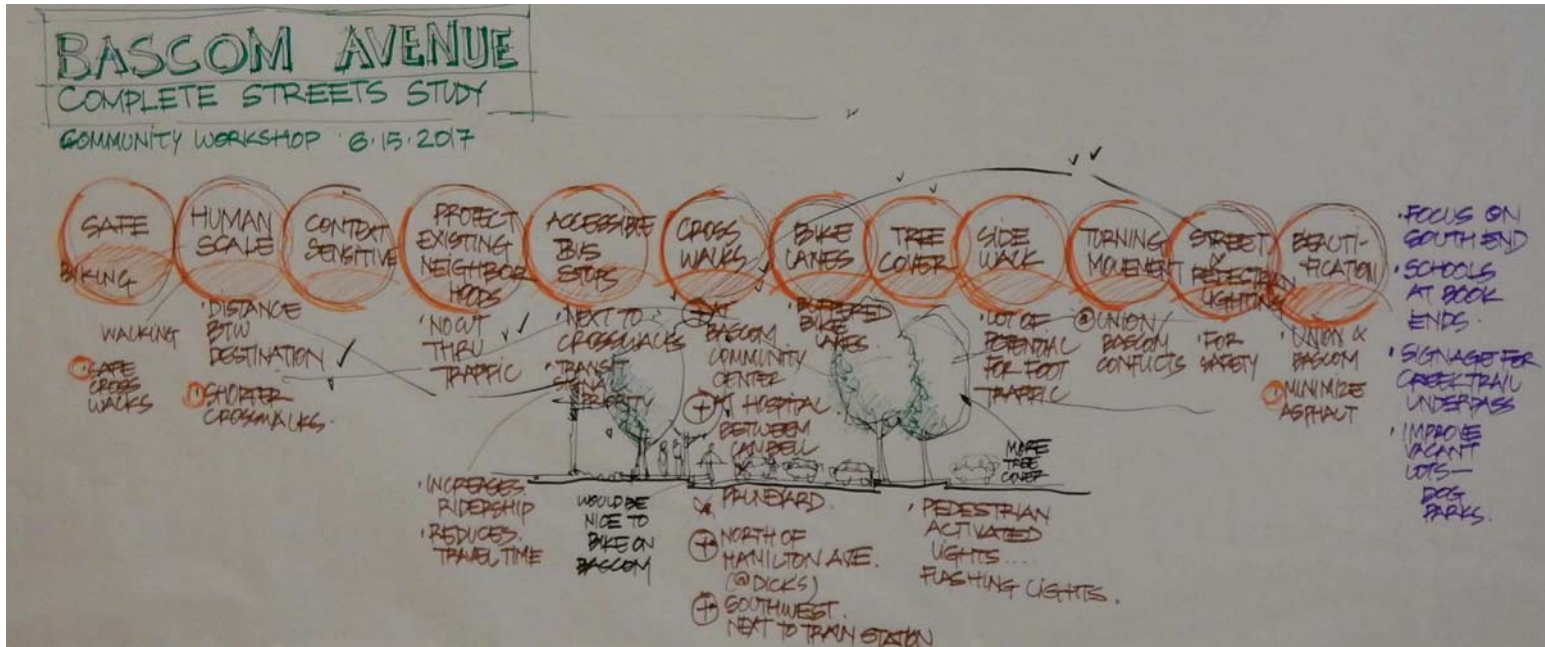 BASCOM AVENUE
COMPLETE STREETS STUDY
COMMUNITY WORKSHOP 6.15.2017
SAFE
BIKING
WALKING
SAFE
CROSS
WALKS
HUMAN
SCALE
• DISTANCE
BTW
DESTINATION
SHORTER
CROSSWALKS.
CONTEXT
SENSITIVE
PROTECT
EXISTING
NEIGHBOR
HOODS
• NO CUT
THRU
TRAFFIC
ACCESSIBLE
BUS
STOPS
• NEXT TO
CROSSWALKS
• TRANSIT
SIGNAL
PRIORITY
• INCREASES
RIDERSHIP
• REDUCES
TRAVEL TIME
WOULD BE
NICE TO
BIKE ON
BASCOM
CROSS
WALKS
AT
BASCOM
COMMUNITY
CENTER
AT HOSPITAL
BETWEEN
CAMBELL
&
PRUNEYARD.
NORTH OF
HAMILTON AVE.
(@DICKS)
SOUTHWEST.
NEXT TO TRAIN STATION
BIKE
LANES
• BUFFERED
BIKE
LANES
TREE
COVER
MORE
TREE
COVER
SIDE
WALK
• LOT OF
POTENTIAL
FOR FOOT
TRAFFIC
• PEDESTRIAN
ACTIVATED
LIGHTS....
FLASHING LIGHTS.
TURNING
MOVEMENT
@ UNION/
BASCOM
CONFLICTS
STREET
&
PEDESTRIAN
LIGHTING
• FOR
SAFETY
BEAUTI-
FICATION
• UNION &
BASCOM
MINIMIZE
ASPHALT
• FOCUS ON
SOUTH END
• SCHOOLS
AT BOOK
ENDS.
• SIGNAGE FOR
CREEK TRAIL
UNDERPASS
• IMPROVE
VACANT
LOTS—
DOG
PARKS.